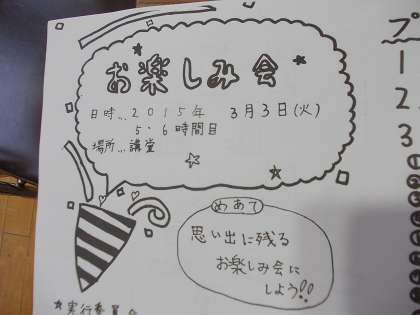 お楽しみ会
日時…2015年 3月3日(火)
5・6時間目
場所…講堂
めあて
思い出に残る
お楽しみ会に
しよう!!
★実行委員会
プ
1
2
3